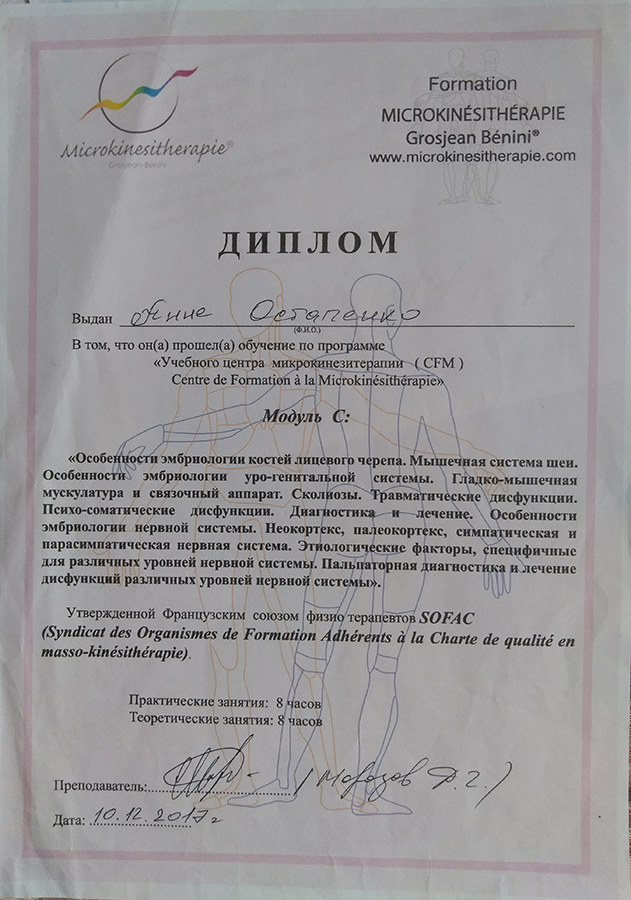 Microkinesitherapie®
Grosjean-Bénini
Formation
MICROKINÉSITHÉRAPIE
Grosjean Bénini®
www.microkinesitherapie.com
ДИПЛОМ
Выдан Анне Остапенко
(Ф.И.О.)
В том, что он(а) прошел(а) обучение по программе
«Учебного центра микрокинезитерапии ( CFM )
Centre de Formation à la Microkinésithérapie»
Модуль С:
«Особенности эмбриологии костей лицевого черепа. Мышечная система шеи.
Особенности эмбриологии уро-генитальной системы. Гладко-мышечная
мускулатура и связочный аппарат. Сколиозы. Травматические дисфункции.
Психо-соматические дисфункции. Диагностика и лечение. Особенности
эмбриологии нервной системы. Неокортекс, палеокортекс, симпатическая и
парасимпатическая нервная система. Этиологические факторы, специфичные
для различных уровней нервной системы. Пальпаторная диагностика и лечение
дисфункций различных уровней нервной системы».
Утвержденной Французским союзом физио терапевтов SOFAC
(Syndicat des Organismes de Formation Adhérents à la Charte de qualité en
masso-kinésithérapie).
Практические занятия: 8 часов
Теоретические занятия: 8 часов
Преподаватель: (Морозов Д.Г.)
Дата: 10.12.2017г